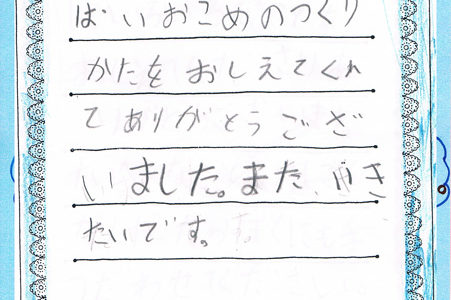 ぱいおこめのつくり
かたをおしえてくれ
てありがとうござ
いました。また、行き
たいです。